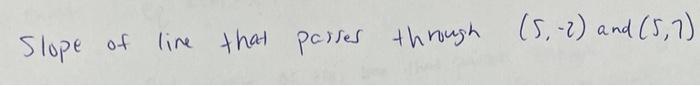 Slope of line that passes through (5,-2) and (5,7)